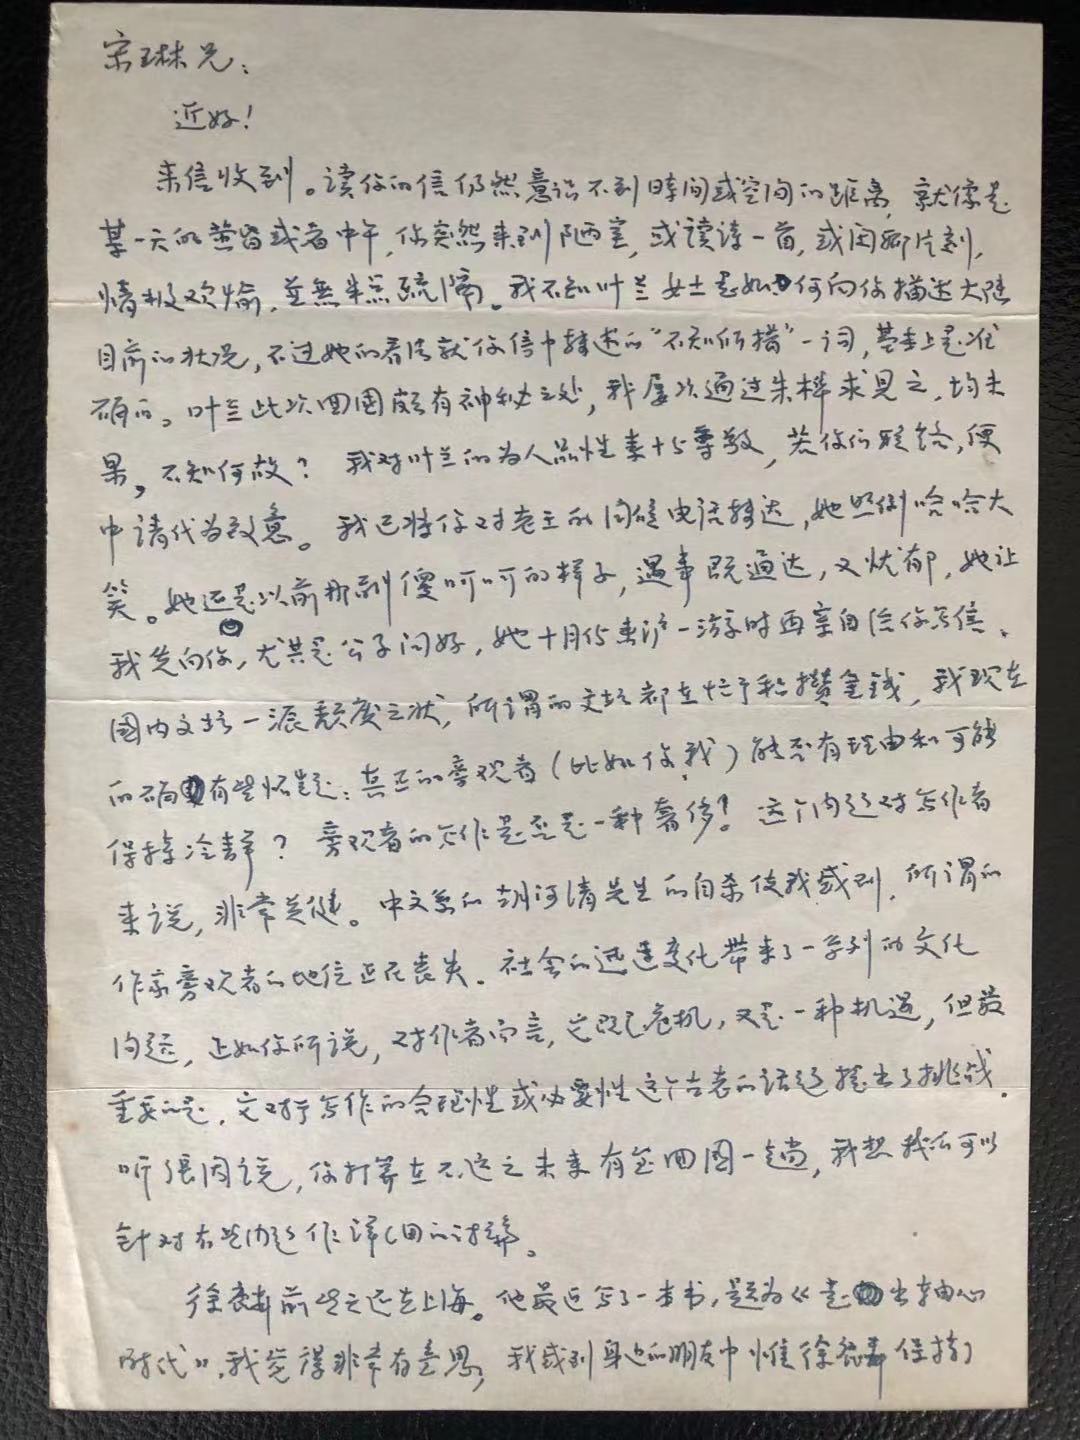 宋琳兄：
近好！
来信收到。读你的信仍然意识不到時间或空间的距离，就像是
某一天的黄昏或者中午，你突然来到陋室，或读诗一首，或闲聊片刻，
情极欢愉，並無半点疏隔。我不知叶兰女士是如何向你描述大陆
目前的状况，不过她的看法就你信中转述的“不知所措”一词，基本上是准
确的。叶兰此次回國颇有神秘之处，我屡次通过朱桦求见之，均未
果，不知何故？我对叶兰的为人品性素十分尊敬，若你们联络，便
中请代为致意。我已将你对老王的问候电话转达，她照例哈哈大
笑。她还是以前那副傻呵呵的样子，遇事既通达，又忧郁，她让
我先向你，尤其是公子问好，她十月份来沪一游时再亲自给你写信。
國内文坛一派颓废之状，所谓的文坛都在忙于积攒金钱，我现在
的确有些怀疑：真正的旁观者（比如你我）能否有理由和可能
保持冷静？旁观者的写作是否是一种奢侈？这个问题对写作者
来说，非常关键。中文系的胡河清先生的自杀使我感到，所谓的
作家旁观者的地位正在丧失。社会的迅速变化带来了一系列的文化
问题，正如你所说，对作者而言，它既是危机，又是一种机遇，但最
重要的是，它对于写作的合理性或必要性这个古老的话题提出了挑战。
听張因说，你打算在不远之未来有金回國一趟，我想我们可以
针对有些问题作详细的讨论。
徐麟前些天还在上海。他最近写了一本书，题为《走出轴心
时代》，我觉得非常有意思，我感到身边的朋友中惟徐麟保持了